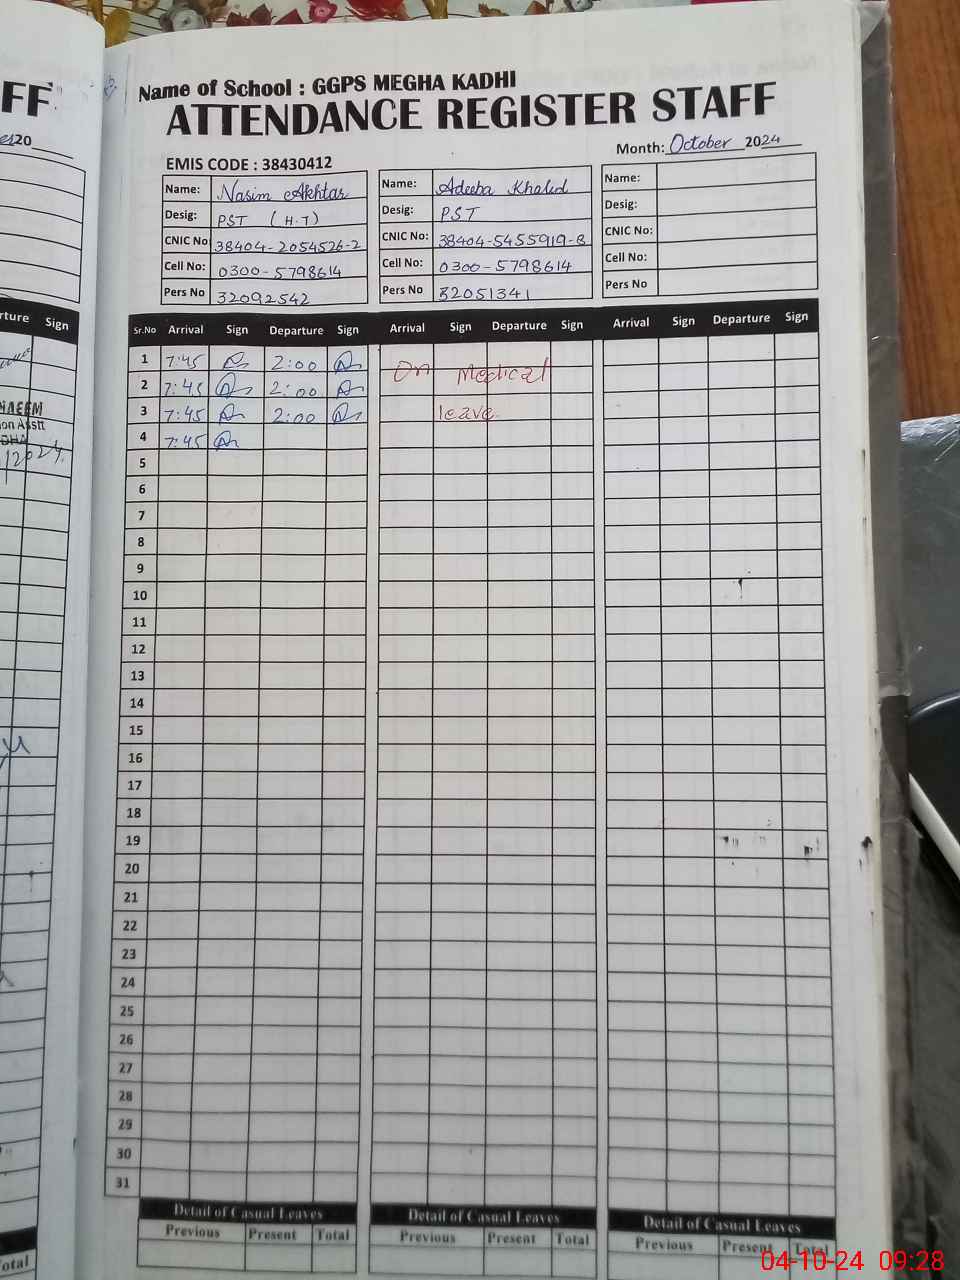 FF
20
Name of School : GGPS MEGHA KADHI
ATTENDANCE REGISTER STAFF
EMIS CODE : 38430412
Month: October 2024
Name: Nasim Akhtar
Desig: PST (H.T)
CNIC No 38404-2054526-2
Cell No: 0300-5798614
Pers No 32092542
Name: Adeeba Khalid
Desig: PST
CNIC No: 38404-5455919-8
Cell No: 0300-5798614
Pers No 32051341
Name:
Desig:
CNIC No:
Cell No:
Pers No
rture Sign
Sr.No Arrival Sign Departure Sign Arrival Sign Departure Sign Arrival Sign Departure Sign
1 7:45 2:00
On Medical
2 7:45 2:00
3 7:45 2:00 leave
4 7:45
NAEEM
on Asstt
DHA
/2024.
5
6
7
8
9
10
11
12
13
14
15
16
17
18
19
20
21
22
23
24
25
26
27
28
29
30
31
Detail of Casual Leaves Detail of Casual Leaves Detail of Casual Leaves
Previous Present Total Previous Present Total Previous Present Total
otal
04-10-24 09:28